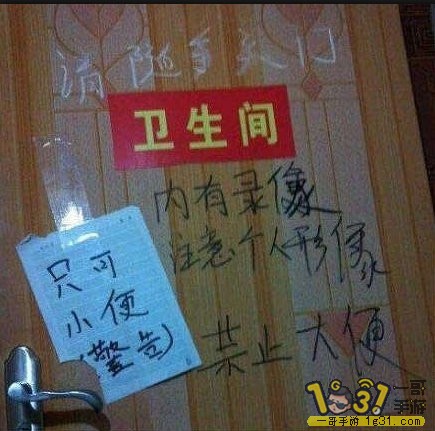 清随手关门
卫生间
内有录像
注意个人形像
只可
小便
(警告)
禁止大便
一哥
手游
一哥手游 1g31.com